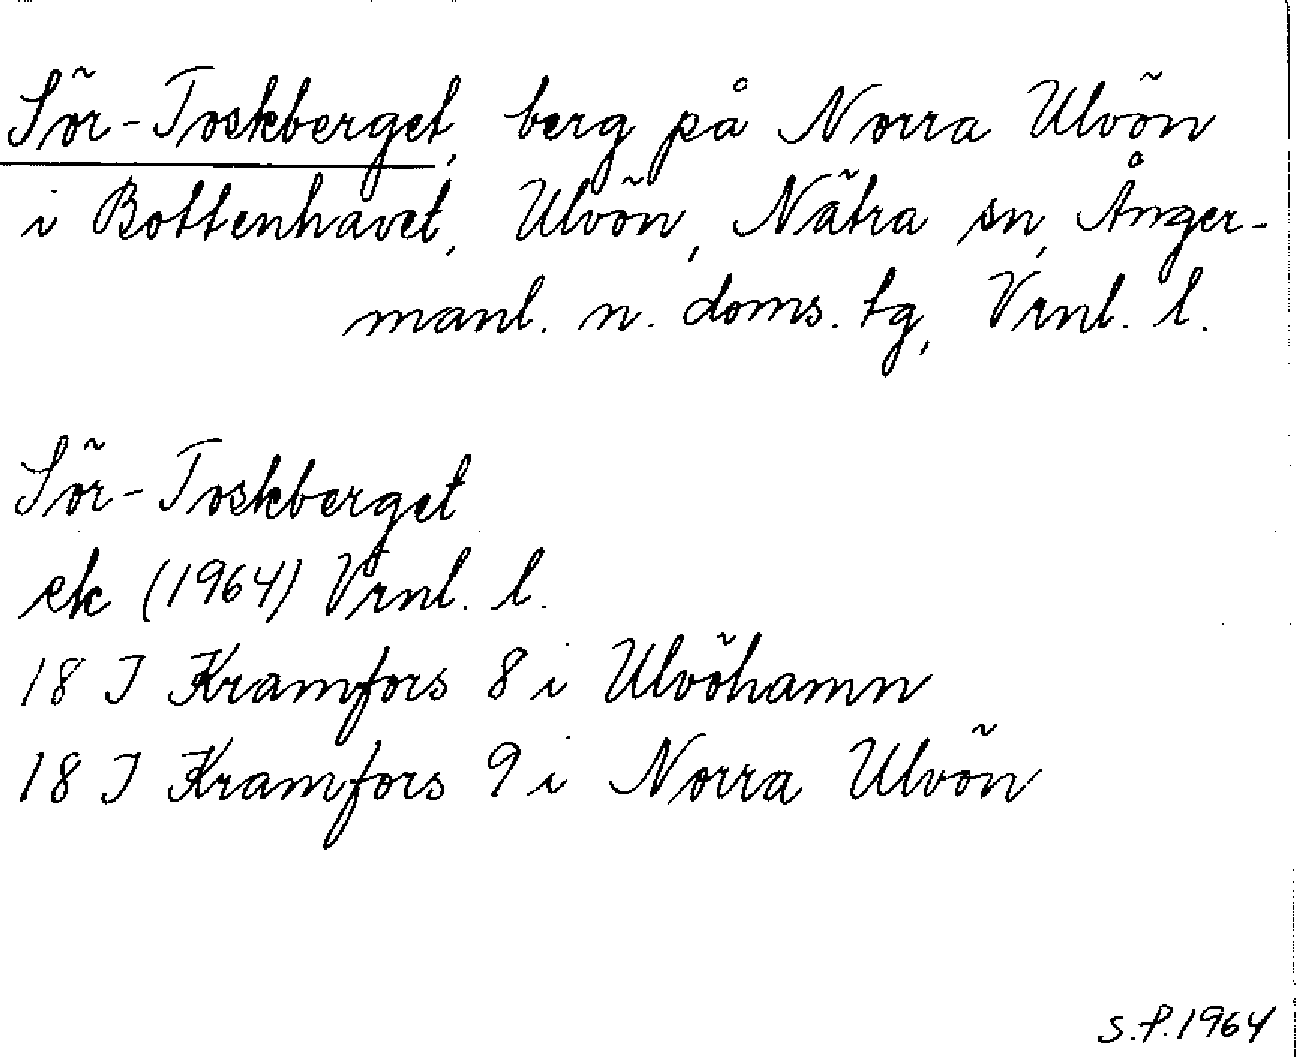 Sör-Toskberget, berg på Norra Ulvön
i Bottenhavet, Ulvön, Nätra sn, Ånger-
manl. n. doms. tg, Vrnl. l.
Sör-Toskberget
ek (1964) Vrnl. l.
18 I Kramfors 8 i Ulvöhamn
18 I Kramfors 9 i Norra Ulvön
S.P. 1964